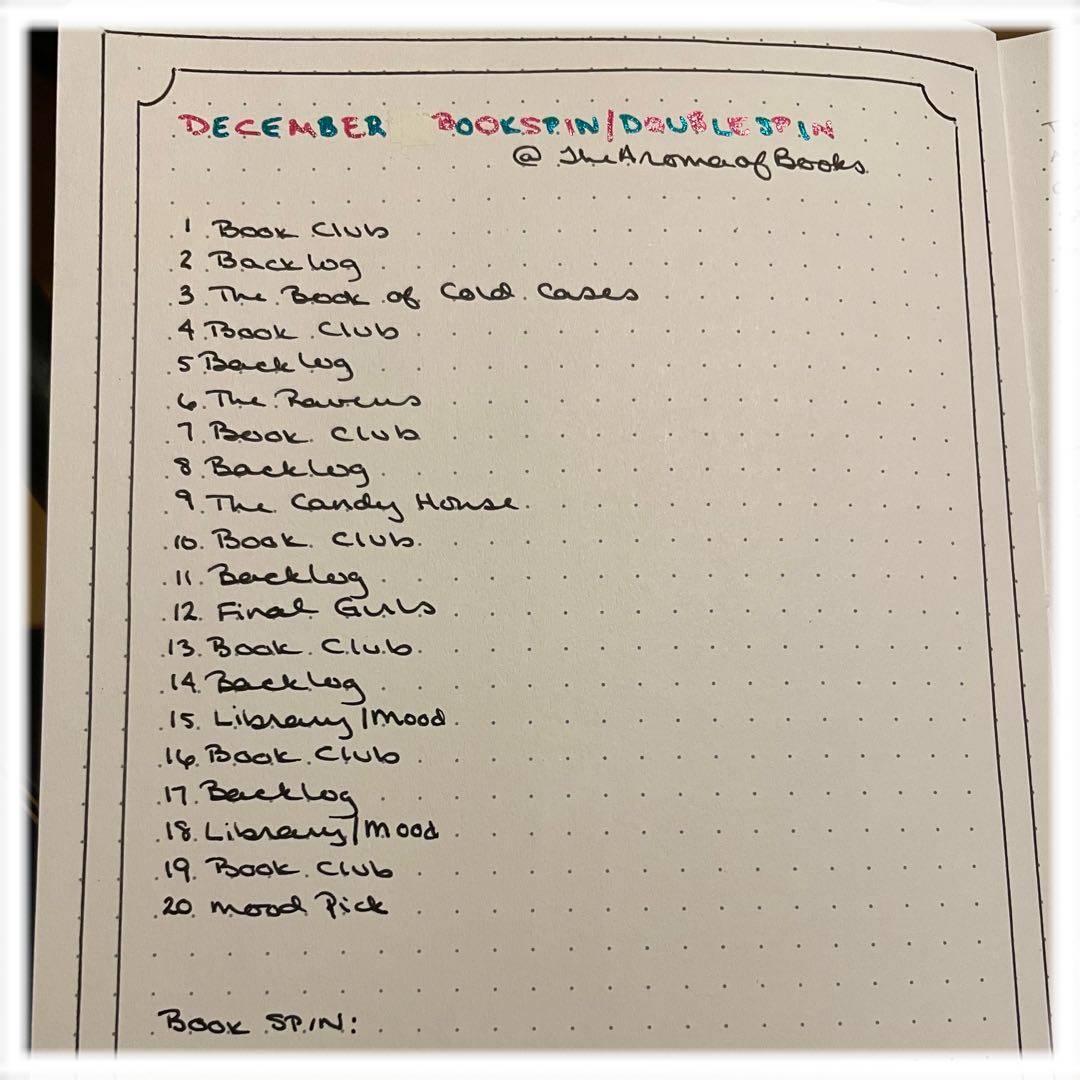 DECEMBER BOOKSPIN/DOUBLESPIN
@ TheAromaofBooks
1 Book Club
2 Backlog
3 The Book of Cold Cases
4 Book Club
5 Backlog
6. The Ravens
7. Book Club
8 Backlog
9. The Candy House
10. Book Club
11. Backlog
12. Final Girls
13. Book Club
14. Backlog
15. Library/Mood
16. Book Club
17. Backlog
18. Library/Mood
19. Book Club
20. Mood Pick
BOOK SPIN: